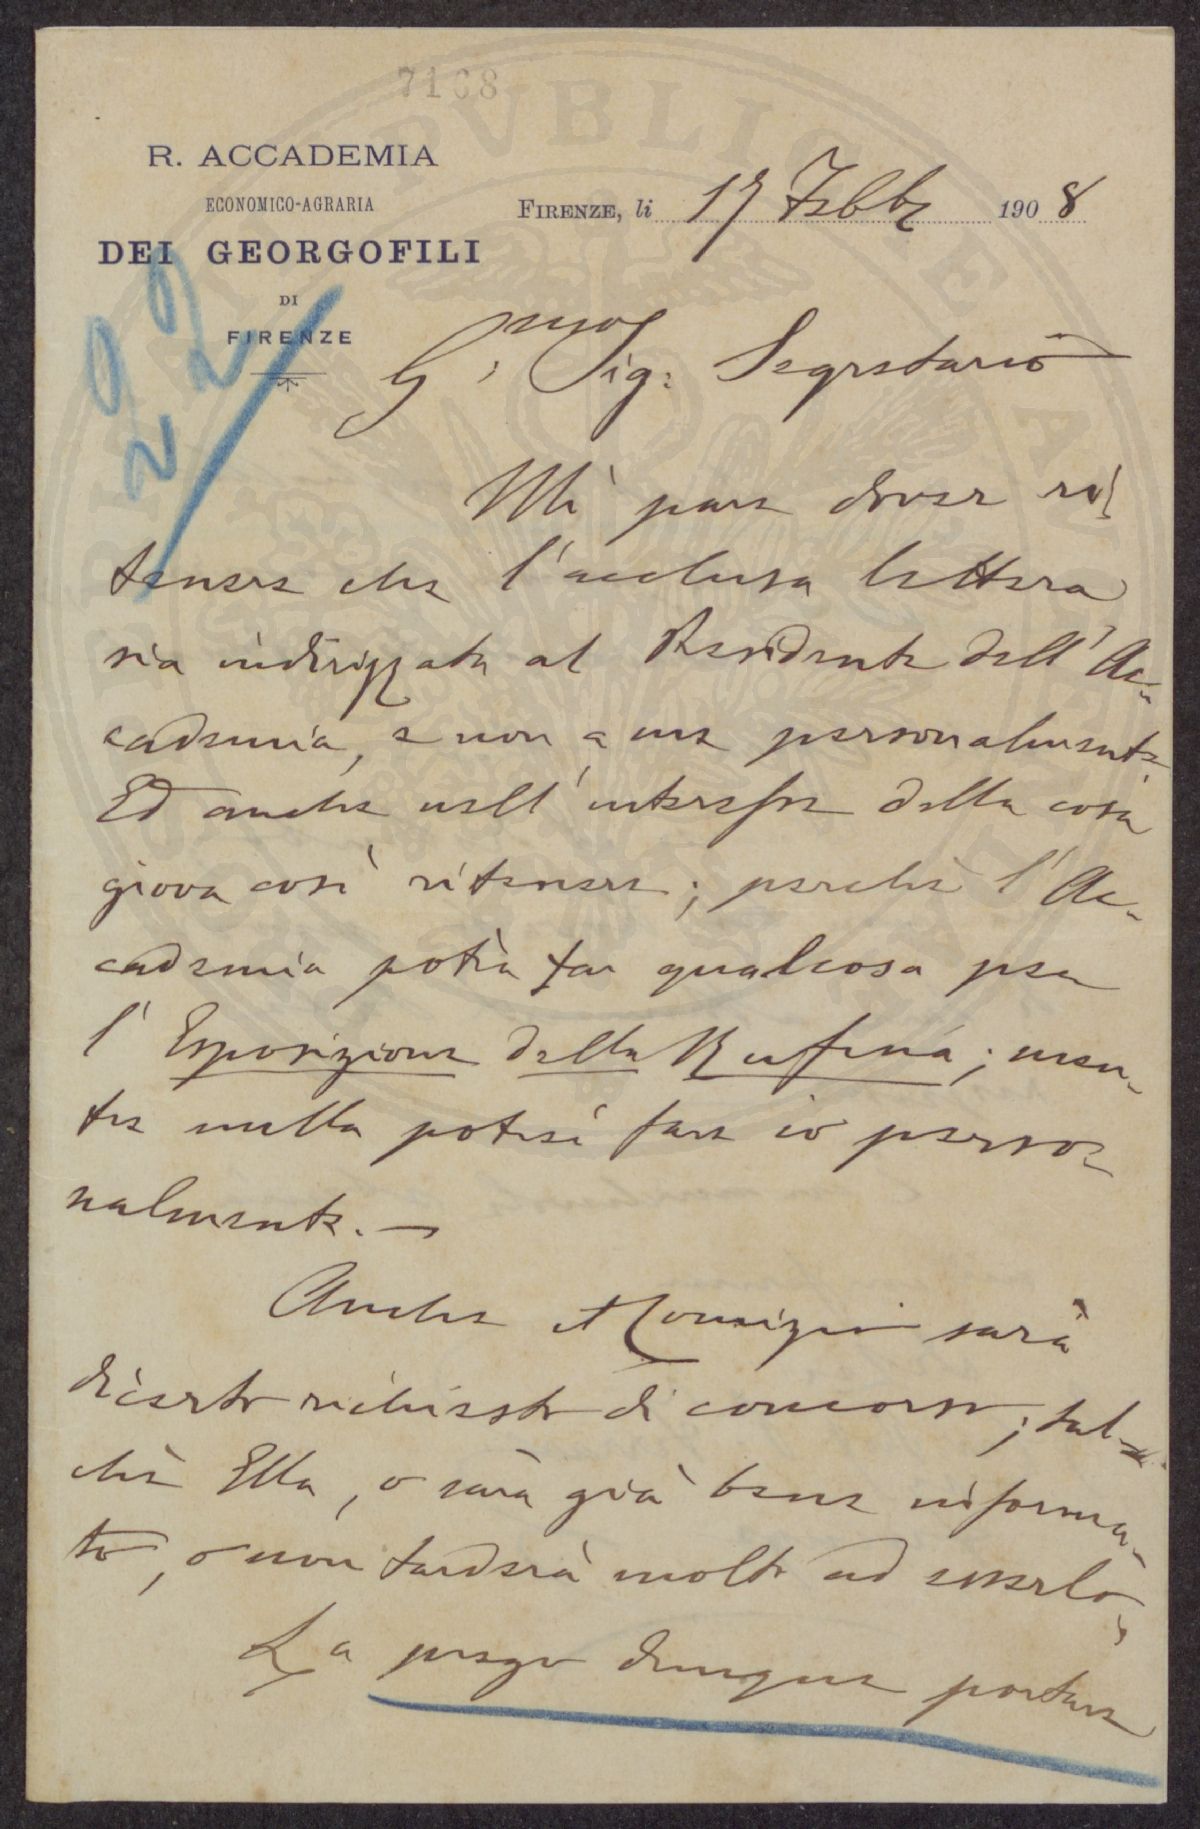 7168
R. ACCADEMIA
ECONOMICO-AGRARIA
DEI GEORGOFILI
DI
FIRENZE
FIRENZE, li 17 Febb: 1908
G.mo Sig: Segretario
Mi pare dover ri-
tenere che l'acclusa lettera
sia indirizzata al Presidente dell'Ac-
cademia, e non a me personalmente.
Ed anche nell'interesse della cosa
giova così ritenere; perchè l'Ac-
cademia potrà far qualcosa per
l'Esposizione della Rufina; men-
tre nulla potrei fare io perso-
nalmente. —
Anche il Comizio sarà
di certo richiesto di concorso; tal-
chè Ella, o sarà già bene informa-
to, o non tarderà molto ad esserlo.
La prego dunque portare
22